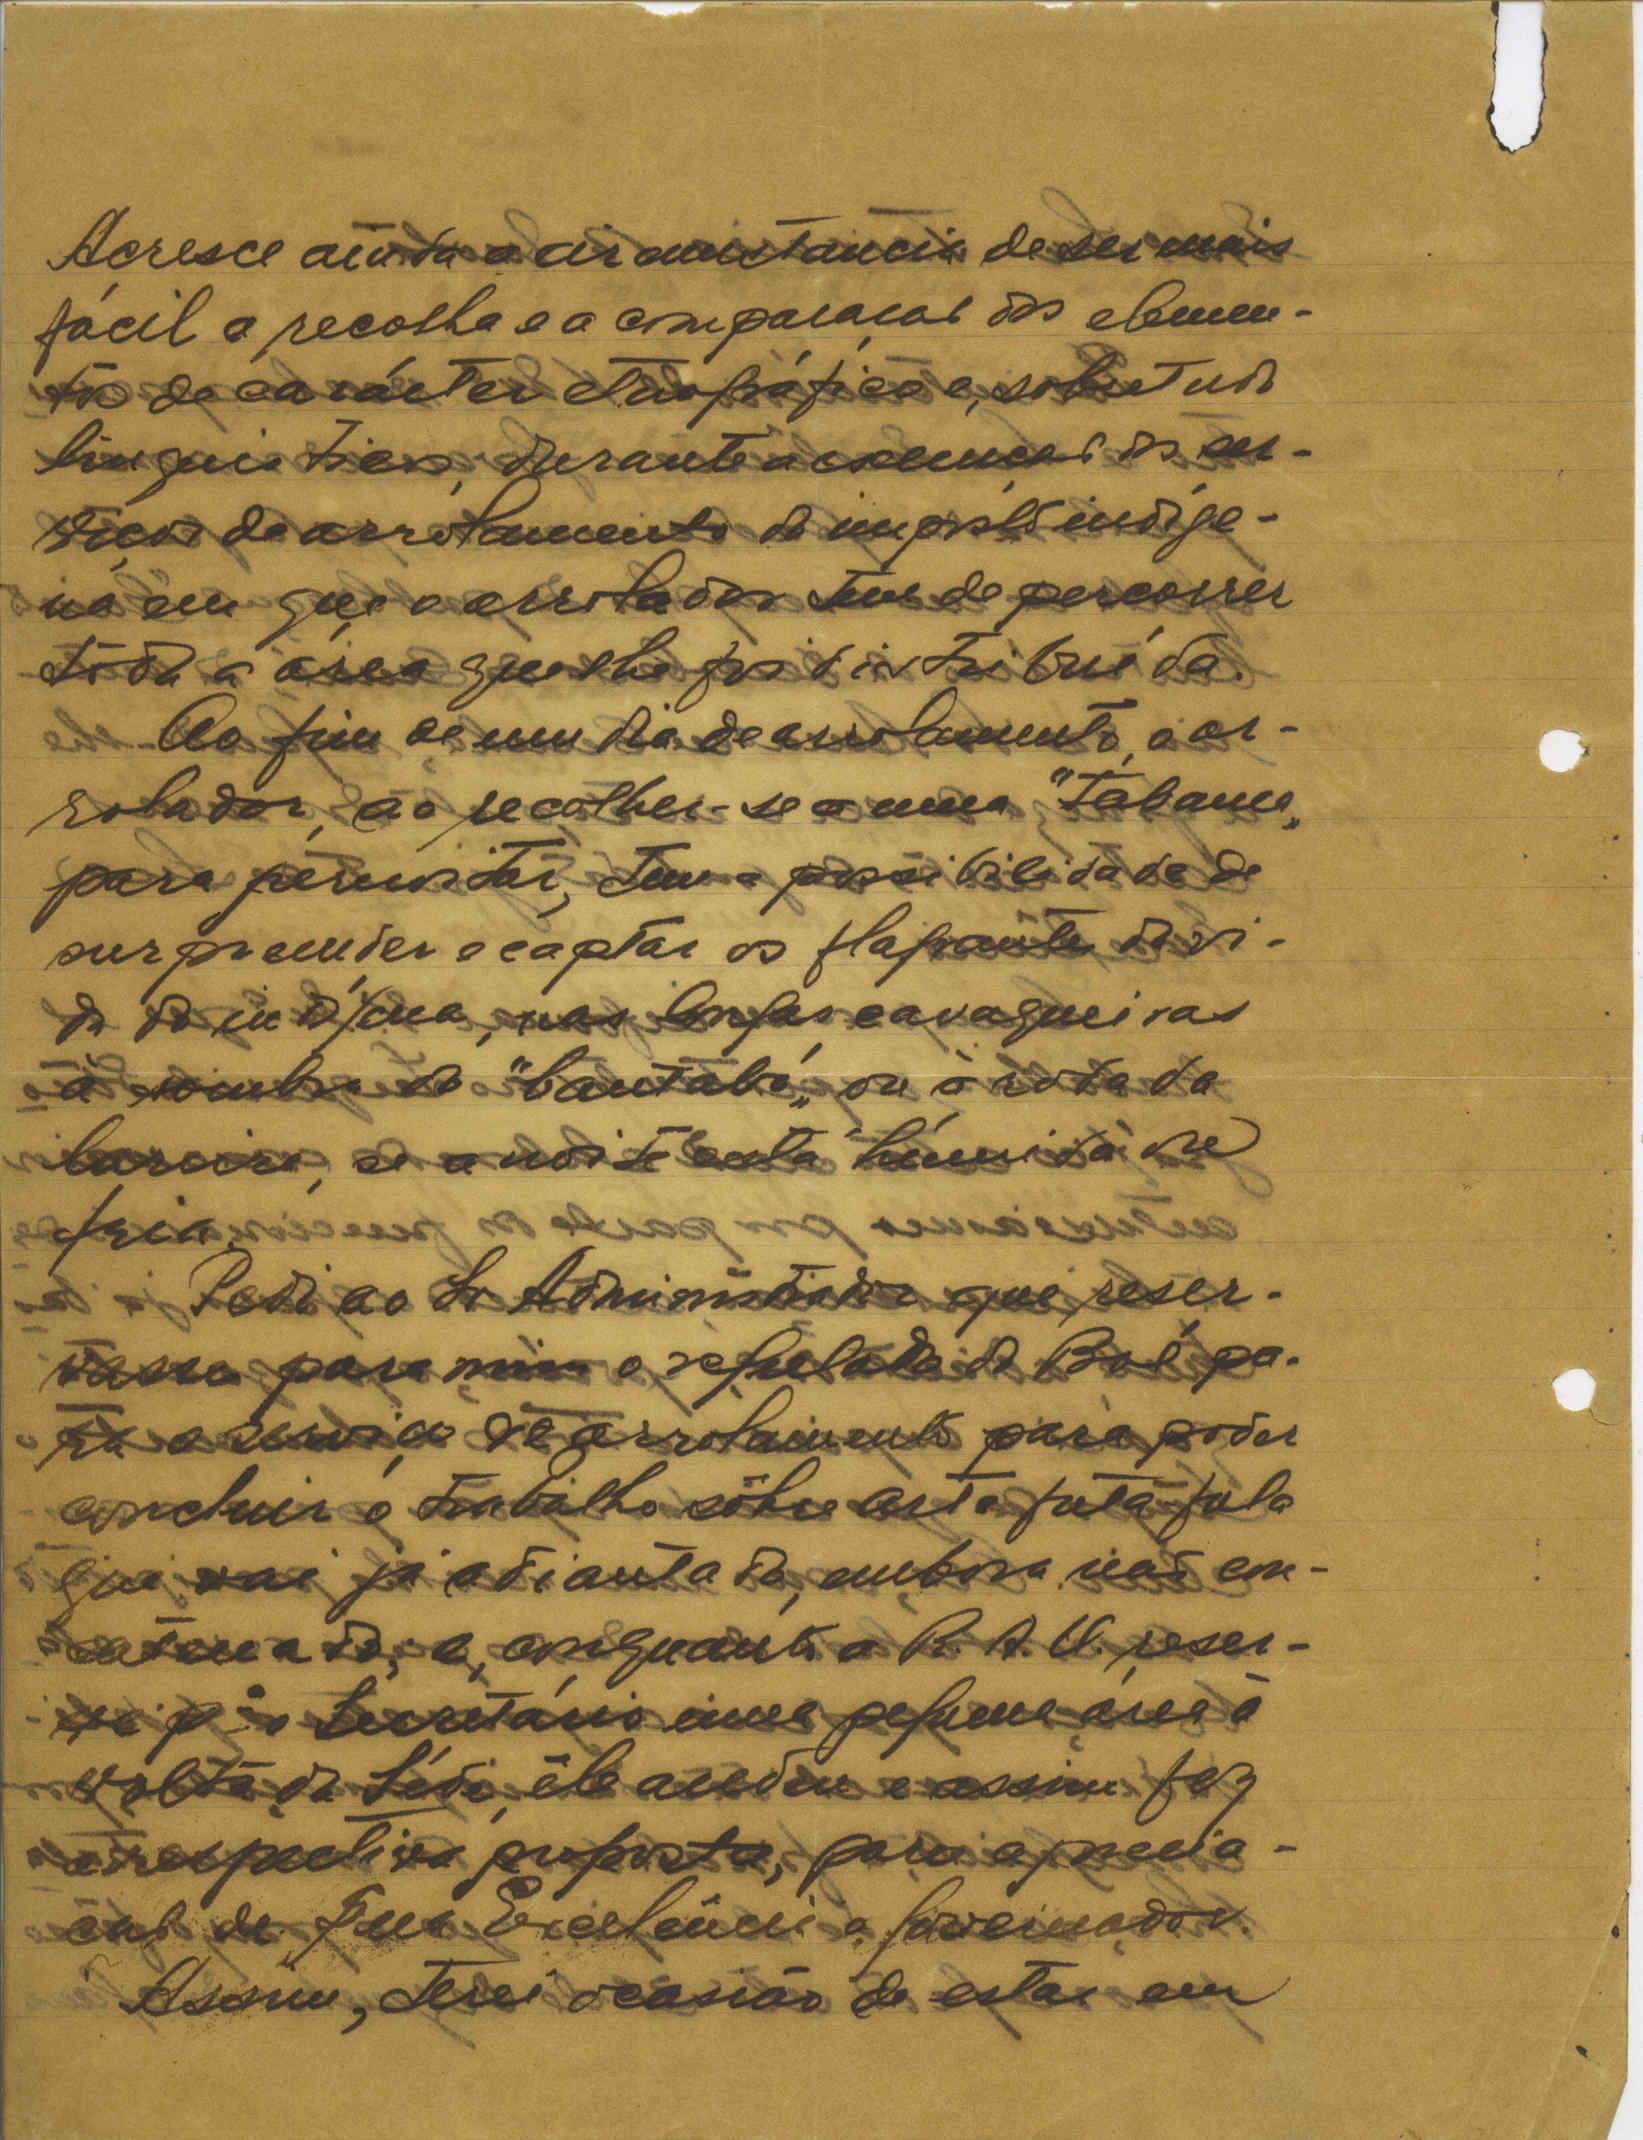 Acresce ainda a circunstancia de ser mais
fácil a recolha e a comparação dos elemen-
tos de carácter etnográfico e, sobretudo
linguistico, durante a execução dos ser-
viços de arrolamento do impôsto indíge-
na em que o arrolador tem de percorrer
tôda a área que lhe foi distribuída.
Ao fim de um dia de arrolamento, o ar-
rolador, ao recolher-se a uma "tabanca„
para pernoitar, tem a possibilidade de
surpreender e captar os flagrantes da vi-
da do indígena, nas longas cavaqueiras
à sombra do "bantabá„ ou à roda da
lareira, se a noite está húmida ou
fria.
Pedi ao Sr Administrador que reser-
vasse para mim o regulado do Boé pa-
ra o serviço de arrolamento para poder
concluir o trabalho sôbre arte futa-fula
que vai já adiantado, embora não con-
catenado; e, conquanto a R. A. U. reser-
ve pª o Secretário uma pequena área à
volta da Séde, êle acedeu e assim fez
a respectiva proposta, para aprecia-
ção de Sua Excelência o Governador.
Assim, terei ocasião de estar em